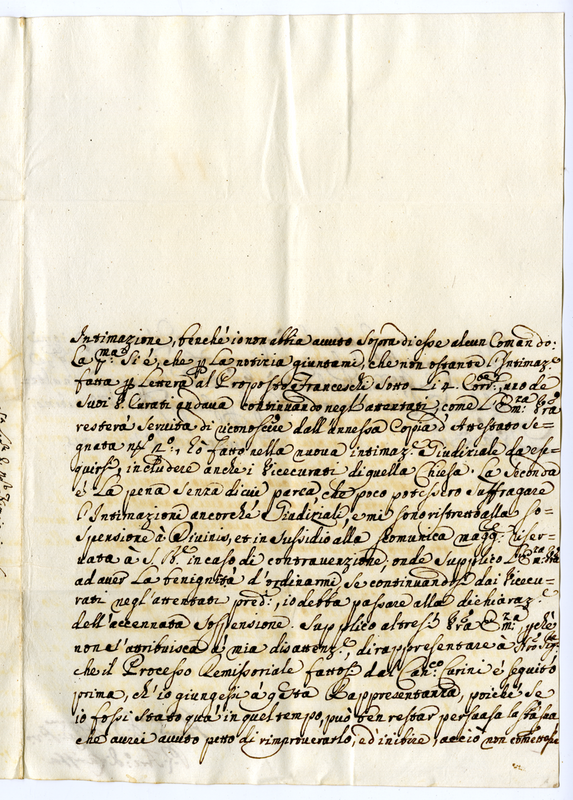 Intimazione, benché io non abbia avuto sopra di esse alcun Comando:
La p.ma si è, che p La notizia giuntami, che non ostante l'Intimaz.e
fatta p Lettera al Proposto Franceschi sotto Li 4. Corr.te, uno de
Suoi V. Curati andava continuando negl'attentati, come L'Em:za V'ra
resterà Servita di riconoscere dall'annessa Copia d'Attestato Se=
gnata n.o, hò fatto nella nuova intimaz.e Giudiziale da ese=
quirsi, includere anche i Vicecurati di quella Chiesa. La Seconda
è La pena senza di cui parea, che poco potessero Suffragare
l'Intimazioni ancorché Giudiziali, e mi sono ristretto alla So=
Spensione à Divinis, et in Sussidio alla Scomunica magg.e riser=
vata à S. B.e in caso di contravenzione, onde Supplico L'Em:za V'ra
ad aver La benignità d'ordinarmi Se continuandosi dai Vicecu=
rati negl'attentati pred.i, io debba passare alla dichiaraz.e
dell'accennata Sospensione. Supplico altresì V'ra Em:za, pchè
non s'attribuisca à mia disattenz.e, di rappresentare à Nro Sig.re
che il Processo Remissoriale fattosi dal Can.co Carini è seguito
prima, ch'io giungessi à q'sta Rappresentanza, poiché Se
io fossi Stato quà in quel tempo, può ben restar persuasa La
che aurei avuto petto di rimproverarlo, ed inibire, acciò non comettesse